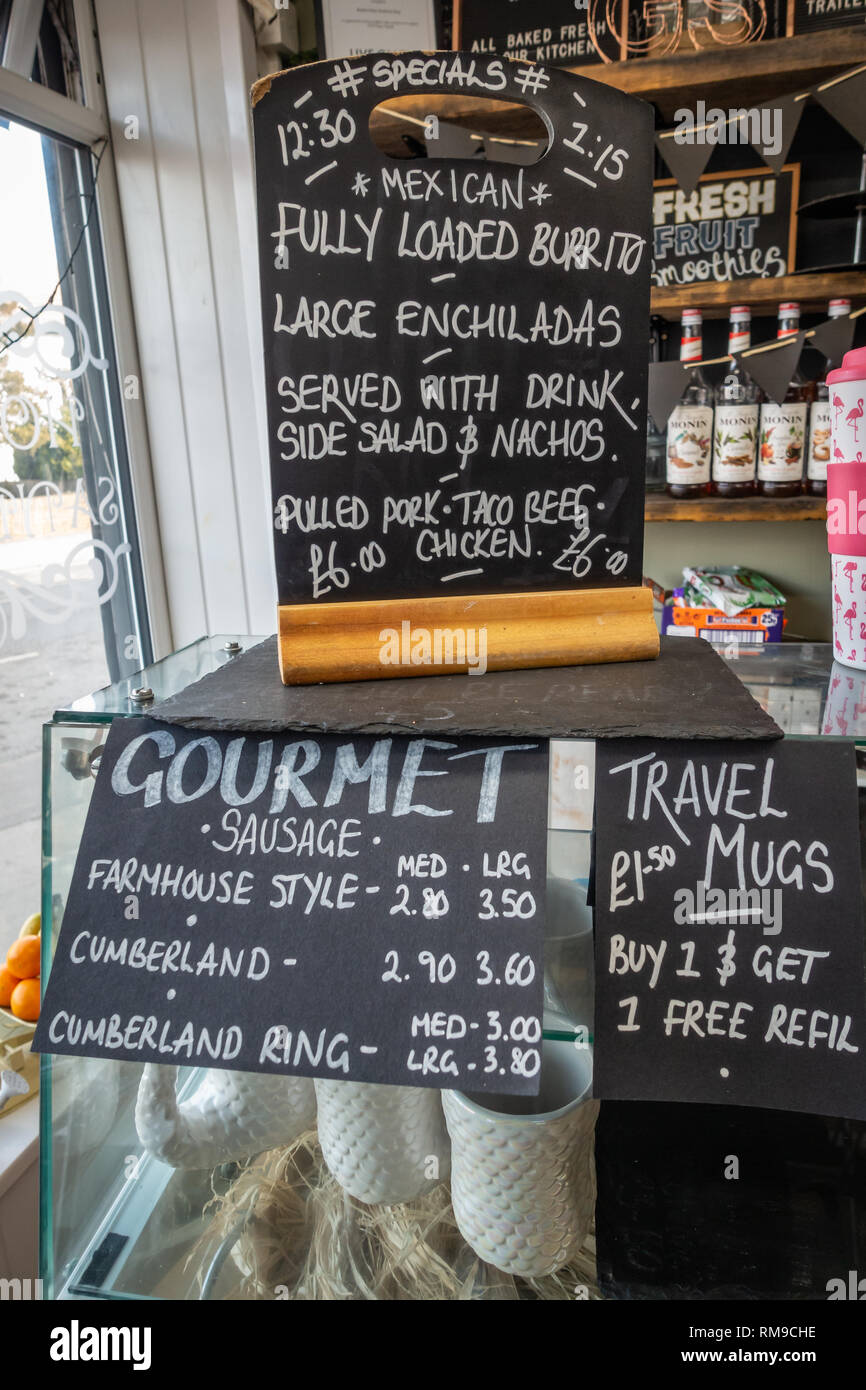 ALL BAKED FRESH
OUR KITCHEN
TRAILE
# SPECIALS #
12:30 1:15
* MEXICAN *
FULLY LOADED BURRITO
-
LARGE ENCHILADAS
-
SERVED WITH DRINK,
SIDE SALAD & NACHOS.
-
PULLED PORK · TACO BEEF ·
£6.00 CHICKEN. £6.00
FRESH
FRUIT
Smoothies
MONIN MONIN MONIN
GOURMET
· SAUSAGE ·
MED · LRG
FARMHOUSE STYLE - 2.80 3.50
·
CUMBERLAND - 2.90 3.60
·
CUMBERLAND RING - MED - 3.00
LRG - 3.80
TRAVEL
£1.50 MUGS
BUY 1 & GET
1 FREE REFILL
·
a alamy stock photo
RM9CHE
www.alamy.com